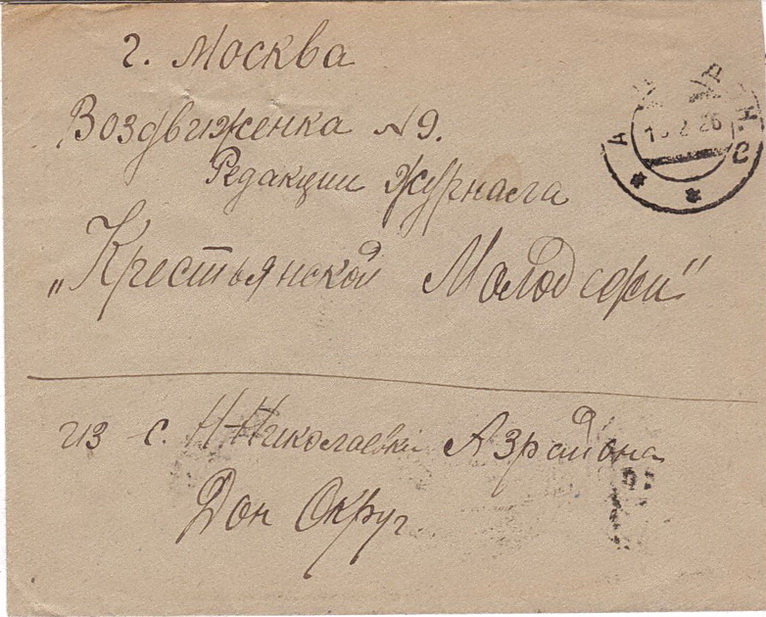 г. Москва
Воздвиженка № 9.
Редакции журнала
„Крестьянской Молодежи"
из с. Н-Николаевки Азрайона
Дон Округ